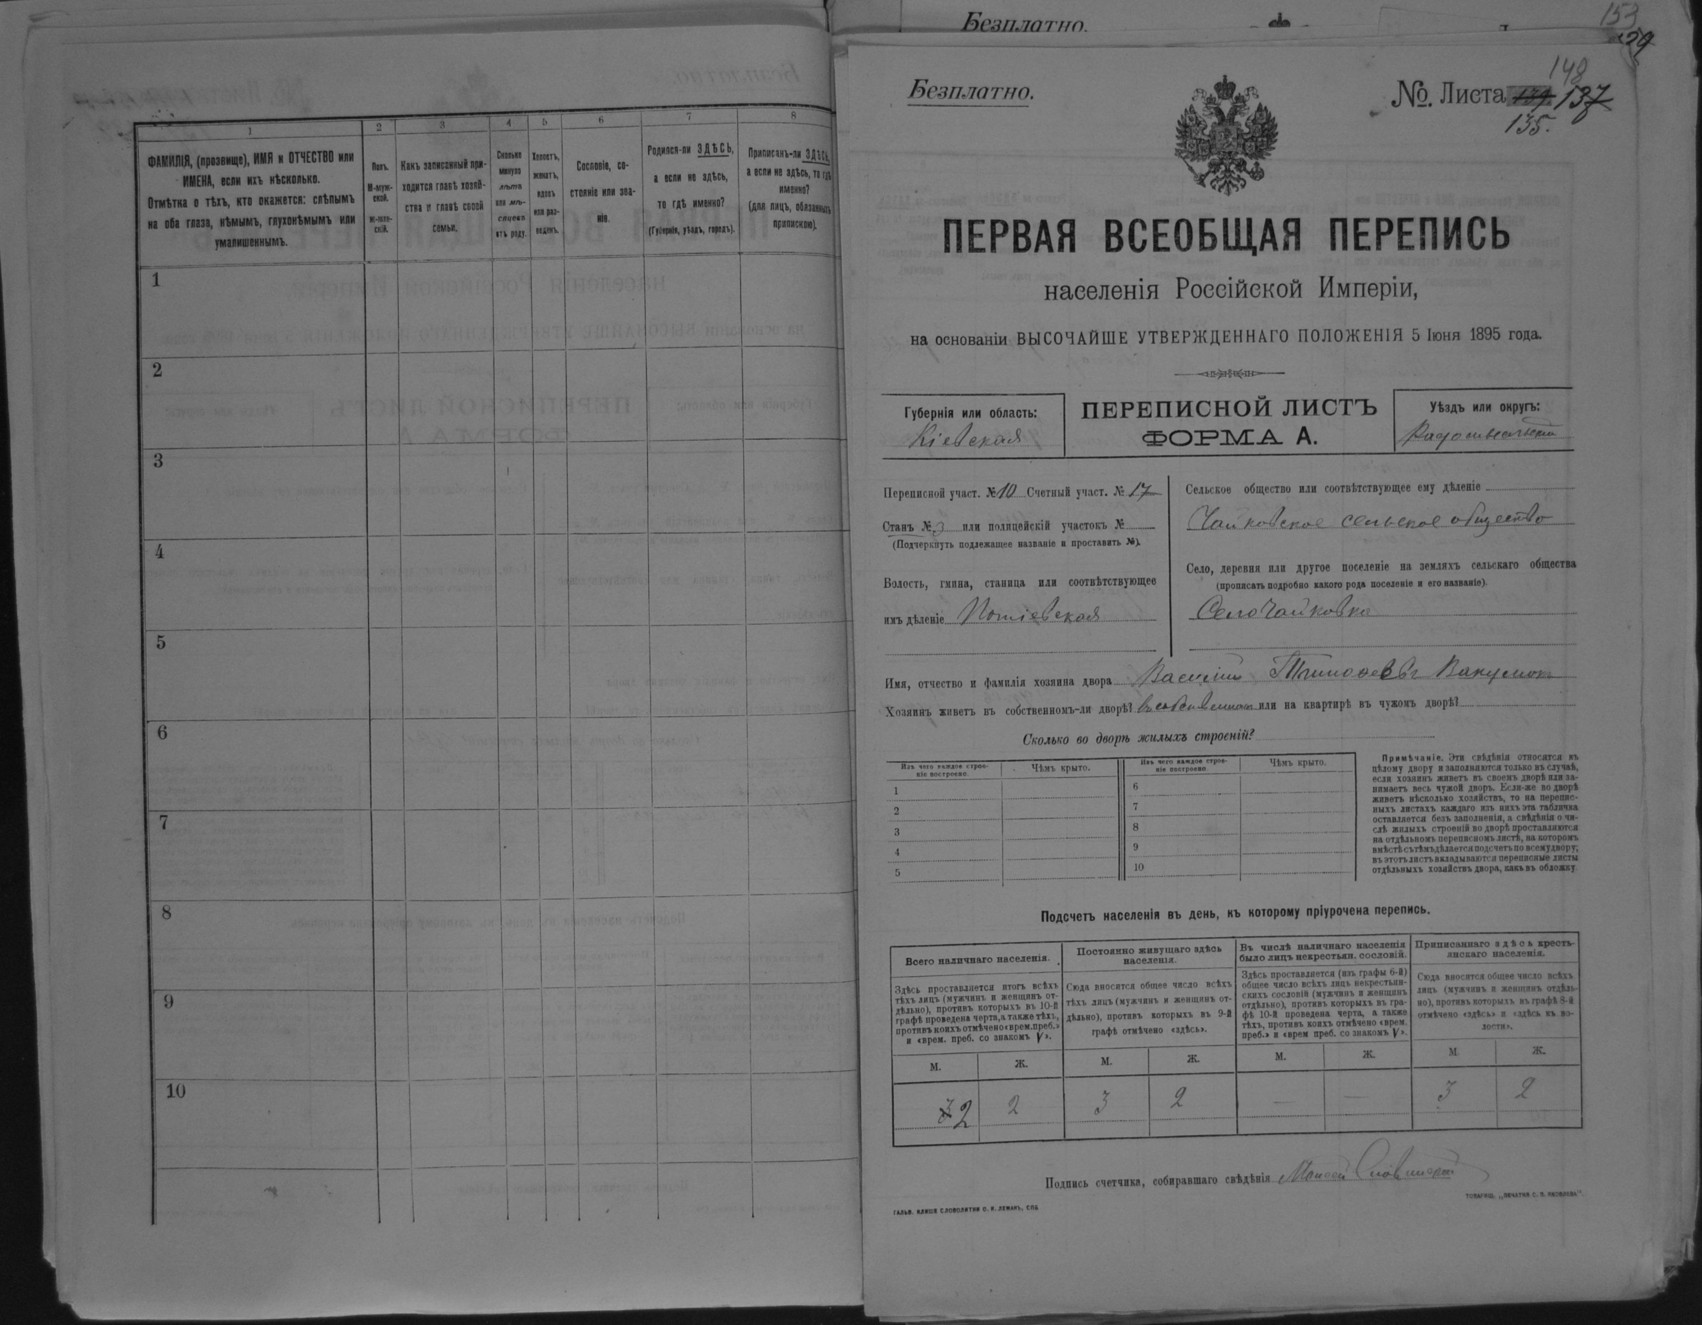 1 2 3 4 5 6 7 8
ФАМИЛІЯ, (прозвище), ИМЯ и ОТЧЕСТВО или
ИМЕНА, если ихъ нѣсколько.
Отмѣтка о тѣхъ, кто окажется: слѣпымъ
на оба глаза, нѣмымъ, глухонѣмымъ или
умалишеннымъ.
Полъ.
М-муж-
ской.
Ж-жен-
скій.
Какъ записанный при-
ходится главѣ хозяй-
ства и главѣ своей
семьи.
Сколько
минуло
лѣтъ
или мѣ-
сяцевъ
отъ роду.
Холостъ,
женатъ,
вдовъ
или раз-
веденъ.
Сословіе, со-
стояніе или зва-
ніе.
Родился-ли ЗДѢСЬ,
а если не здѣсь,
то гдѣ именно?
(Губернія, уѣздъ, городъ).
Приписанъ-ли ЗДѢСЬ,
а если не здѣсь, то гдѣ
именно?
(для лицъ, обязанныхъ
припискою).
1
2
3
4
5
6
7
8
9
10
Безплатно.
153
Безплатно.
148
№. Листа 139 137
135.
ПЕРВАЯ ВСЕОБЩАЯ ПЕРЕПИСЬ
населенія Россійской Имперіи,
на основаніи ВЫСОЧАЙШЕ УТВЕРЖДЕННАГО ПОЛОЖЕНІЯ 5 Іюня 1895 года.
Губернія или область:
Кіевская
ПЕРЕПИСНОЙ ЛИСТЪ
ФОРМА А.
Уѣздъ или округъ:
Радомысльскій
Переписной участ. № 10 Счетный участ. № 17
Станъ № 3 или полицейскій участокъ №
(Подчеркнуть подлежащее названіе и проставить №).
Волость, гмина, станица или соотвѣтствующее
имъ дѣленіе Потіевская
Сельское общество или соотвѣтствующее ему дѣленіе
Чайковское сельское общество
Село, деревня или другое поселеніе на земляхъ сельскаго общества
(прописать подробно какого рода поселеніе и его названіе).
Село Чайковка
Имя, отчество и фамилія хозяина двора Василій
Хозяинъ живетъ въ собственномъ-ли дворѣ? въ собственномъ или на квартирѣ въ чужомъ дворѣ?
Сколько во дворѣ жилыхъ строеній?
Изъ чего каждое строе-
ніе построено.
Чѣмъ крыто.
1
2
3
4
5
Изъ чего каждое строе-
ніе построено.
Чѣмъ крыто.
6
7
8
9
10
Примѣчаніе. Эти свѣдѣнія относятся къ
цѣлому двору и заполняются только въ случаѣ,
если хозяинъ живетъ въ своемъ дворѣ или за-
нимаетъ весь чужой дворъ. Если-же во дворѣ
живетъ нѣсколько хозяйствъ, то на перепис-
ныхъ листахъ каждаго изъ нихъ эта табличка
оставляется безъ заполненія, а свѣдѣнія о чи-
слѣ жилыхъ строеній во дворѣ проставляются
на отдѣльномъ переписномъ листѣ, на которомъ
вмѣстѣ съ тѣмъ дѣлается подсчетъ по всему двору;
въ этотъ листъ вкладываются переписные листы
отдѣльныхъ хозяйствъ двора, какъ въ обложку.
Подсчетъ населенія въ день, къ которому пріурочена перепись.
Всего наличнаго населенія.
Здѣсь проставляется итогъ всѣхъ
тѣхъ лицъ (мужчинъ и женщинъ от-
дѣльно), противъ которыхъ въ 10-й
графѣ проведена черта, а также тѣхъ,
противъ коихъ отмѣчено «врем. преб.»
и «врем. преб. со знакомъ V».
Постоянно живущаго здѣсь
населенія.
Сюда вносится общее число всѣхъ
тѣхъ лицъ (мужчинъ и женщинъ от-
дѣльно), противъ которыхъ въ 9-й
графѣ отмѣчено «здѣсь».
Въ числѣ наличнаго населенія
было лицъ некрестьян. сословій.
Здѣсь проставляется (изъ графы 6-й)
общее число всѣхъ лицъ некрестьян-
скихъ сословій (мужчинъ и женщинъ
отдѣльно), противъ которыхъ въ гра-
фѣ 10-й проведена черта, а также
тѣхъ, противъ коихъ отмѣчено «врем.
преб.» и «врем преб. со знакомъ V».
Приписаннаго здѣсь кресть-
янскаго населенія.
Сюда вносится общее число всѣхъ
лицъ (мужчинъ и женщинъ отдѣль-
но), противъ которыхъ въ графѣ 8-й
отмѣчено «здѣсь» и «здѣсь въ во-
лости».
М. Ж. М. Ж. М. Ж. М. Ж.
3 2 2 3 2 — — 3 2
Подпись счетчика, собиравшаго свѣдѣнія
ГАЛЬВ. КЛИШЕ СЛОВОЛИТНИ О. И. ЛЕМАНЪ, СПБ.
ТОВАРИЩ. „ПЕЧАТНЯ С. П. ЯКОВЛЕВА".